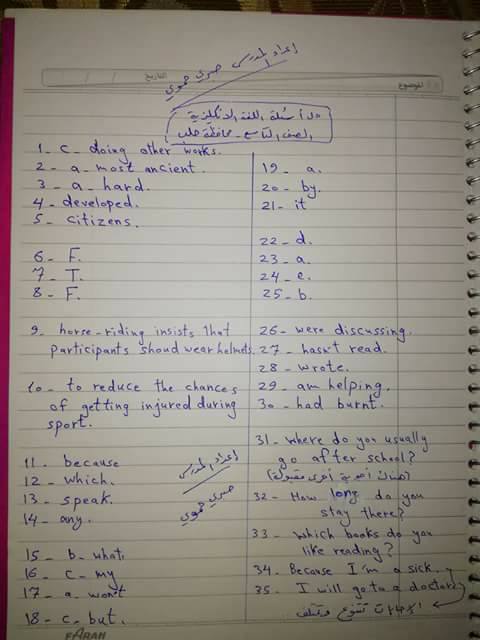 إعداد المدرس صبري حموي
الموضوع
التاريخ / /
اسئلة اللغة الانكليزية
الصف التاسع - محافظة حلب
1 - c - doing other works.
2 - a - most ancient.
3 - a - hard.
4 - developed.
5 - citizens.
6 - F.
7 - T.
8 - F.
9 - horse-riding insists that
participants shoud wear helmets.
10 - to reduce the chances
of getting injured during
sport.
11 - because
12 - which.
13 - speak.
14 - any.
15 - b - what.
16 - c - my
17 - a - won't
18 - c - but.
19 - a.
20 - by.
21 - it
22 - d.
23 - a.
24 - c.
25 - b.
26 - were discussing.
27 - hasn't read.
28 - wrote.
29 - am helping.
30 - had burnt.
31 - Where do you usually
go after school?
(هناك أجوبة أخرى مقبولة)
32 - How long do you
stay there?
33 - Which books do you
like reading?
34 - Because I'm a sick.
35 - I will go to a doctor.
الإجابات تتنوع وتختلف
إعداد المدرس
صبري حموي
FARAH